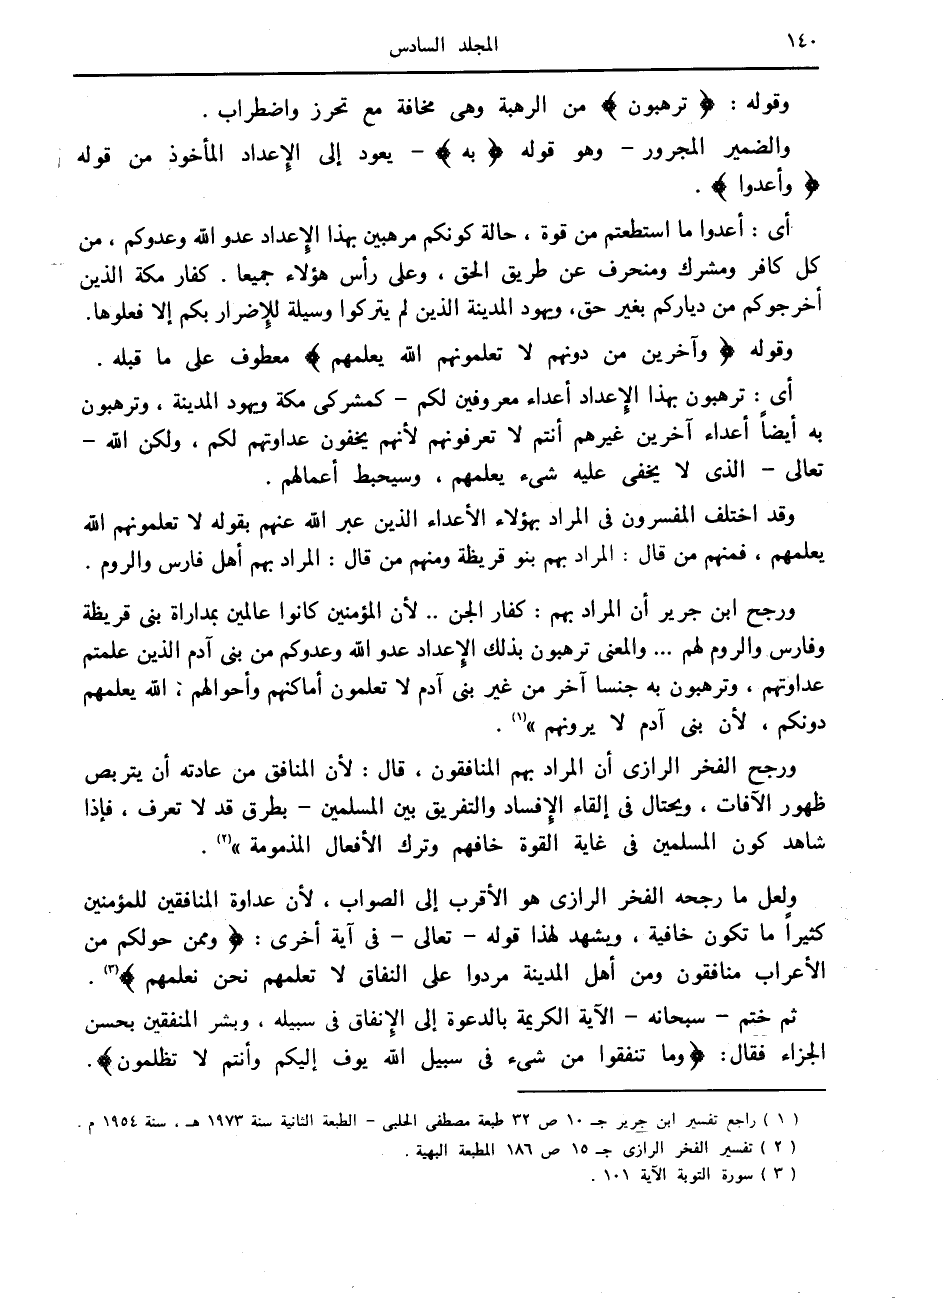 ١٤٠
المجلد السادس
وقوله : ﴿ ترهبون ﴾ من الرهبة وهى مخافة مع تحرز واضطراب .
والضمير المجرور – وهو قوله ﴿ به ﴾ – يعود إلى الإعداد المأخوذ من قوله
﴿ وأعدوا ﴾ .
أى : أعدوا ما استطعتم من قوة ، حالة كونكم مرهبين بهذا الإعداد عدو الله وعدوكم ، من
كل كافر ومشرك ومنحرف عن طريق الحق ، وعلى رأس هؤلاء جميعا . كفار مكة الذين
أخرجوكم من دياركم بغير حق، ويهود المدينة الذين لم يتركوا وسيلة للإضرار بكم إلا فعلوها.
وقوله ﴿ وآخرين من دونهم لا تعلمونهم الله يعلمهم ﴾ معطوف على ما قبله .
أى : ترهبون بهذا الإعداد أعداء معروفين لكم – كمشركى مكة ويهود المدينة ، وترهبون
به أيضاً أعداء آخرين غيرهم أنتم لا تعرفونهم لأنهم يخفون عداوتهم لكم ، ولكن الله –
تعالى – الذى لا يخفى عليه شىء يعلمهم ، وسيحبط أعمالهم .
وقد اختلف المفسرون فى المراد بهؤلاء الأعداء الذين عبر الله عنهم بقوله لا تعلمونهم الله
يعلمهم ، فمنهم من قال : المراد بهم بنو قريظة ومنهم من قال : المراد بهم أهل فارس والروم .
ورجح ابن جرير أن المراد بهم : كفار الجن .. لأن المؤمنين كانوا عالمين بمداراة بنى قريظة
وفارس والروم لهم ... والمعنى ترهبون بذلك الإعداد عدو الله وعدوكم من بنى آدم الذين علمتم
عداوتهم ، وترهبون به جنسا آخر من غير بنى آدم لا تعلمون أماكنهم وأحوالهم ؛ الله يعلمهم
دونكم ، لأن بنى آدم لا يرونهم »(١) .
ورجح الفخر الرازى أن المراد بهم المنافقون ، قال : لأن المنافق من عادته أن يتربص
ظهور الآفات ، ويحتال فى إلقاء الإفساد والتفريق بين المسلمين – بطرق قد لا تعرف ، فإذا
شاهد كون المسلمين فى غاية القوة خافهم وترك الأفعال المذمومة »(٢) .
ولعل ما رجحه الفخر الرازى هو الأقرب إلى الصواب ، لأن عداوة المنافقين للمؤمنين
كثيراً ما تكون خافية ، ويشهد لهذا قوله – تعالى – فى آية أخرى : ﴿ وممن حولكم من
الأعراب منافقون ومن أهل المدينة مردوا على النفاق لا تعلمهم نحن نعلمهم ﴾(٣) .
ثم ختم – سبحانه – الآية الكريمة بالدعوة إلى الإنفاق فى سبيله ، وبشر المنفقين بحسن
الجزاء فقال: ﴿وما تنفقوا من شىء فى سبيل الله يوف إليكم وأنتم لا تظلمون﴾.
( ١ ) راجع تفسير ابن جرير جـ ١٠ ص ٣٢ طبعة مصطفى الحلبى – الطبعة الثانية سنة ١٩٧٣ هـ ، سنة ١٩٥٤ م .
( ٢ ) تفسير الفخر الرازى جـ ١٥ ص ١٨٦ المطبعة البهية .
( ٣ ) سورة التوبة الآية ١٠١ .